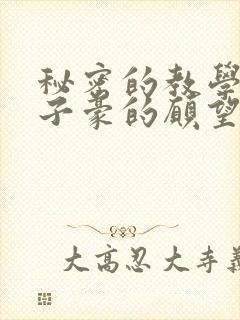 秘密的教學
子豪的願望
大高忍大寺義